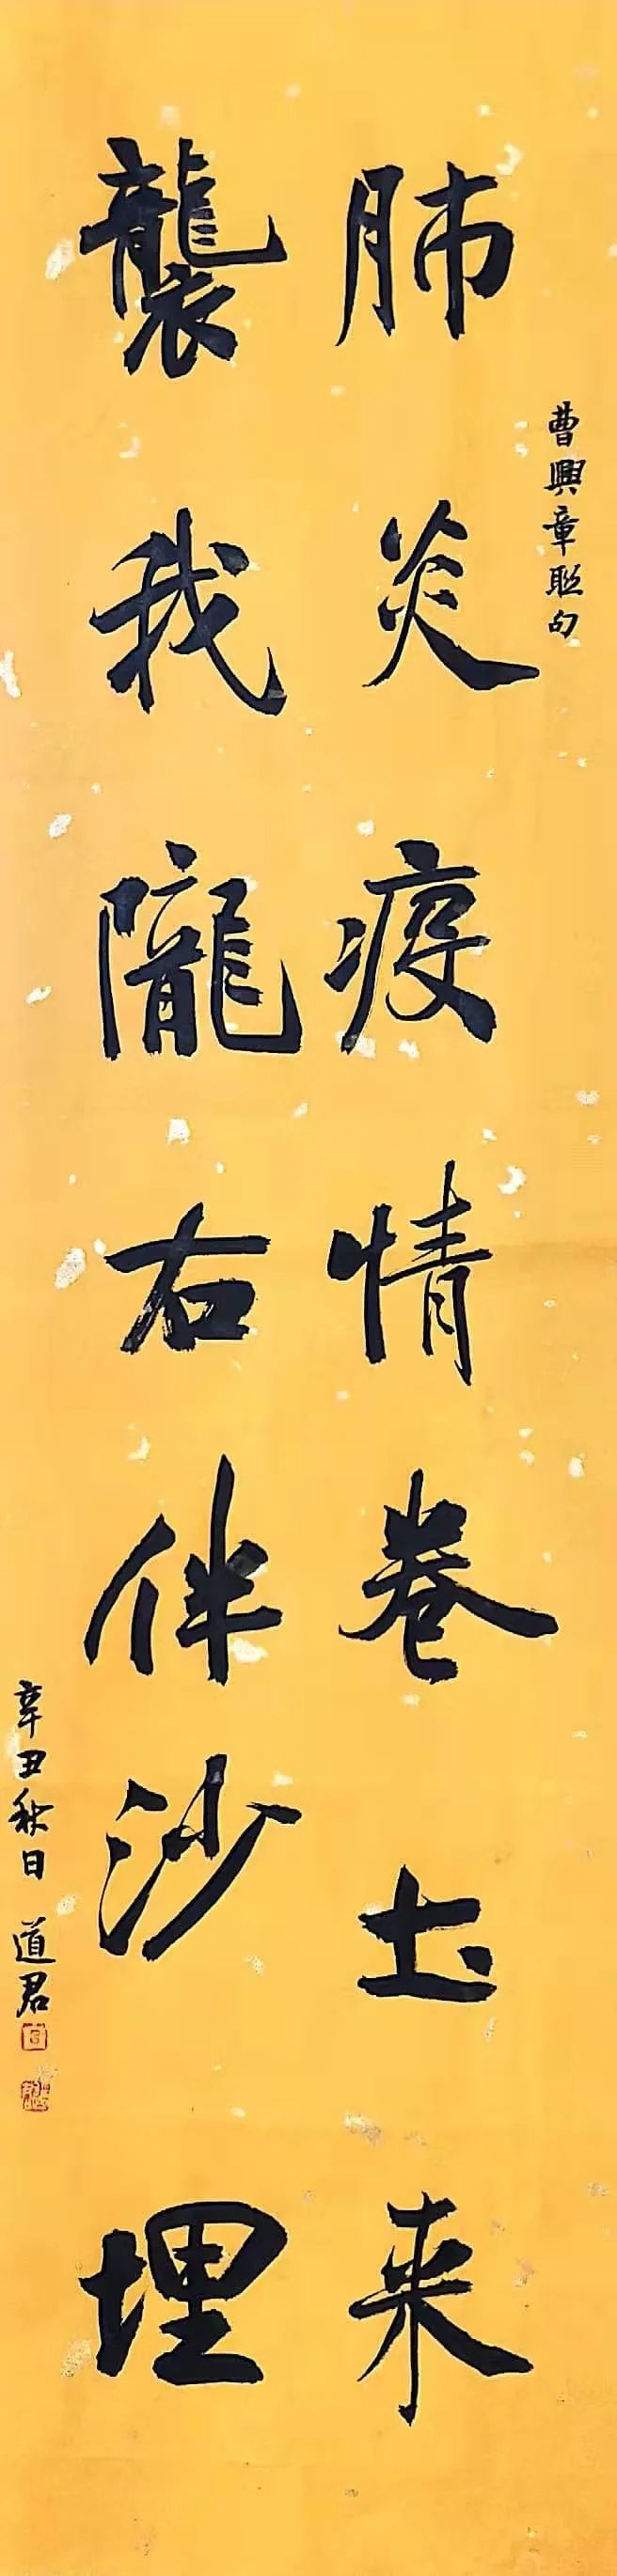 曹興章聯句
肺炎疫情卷土来
襲我隴右伴沙埋
辛丑秋日 道君